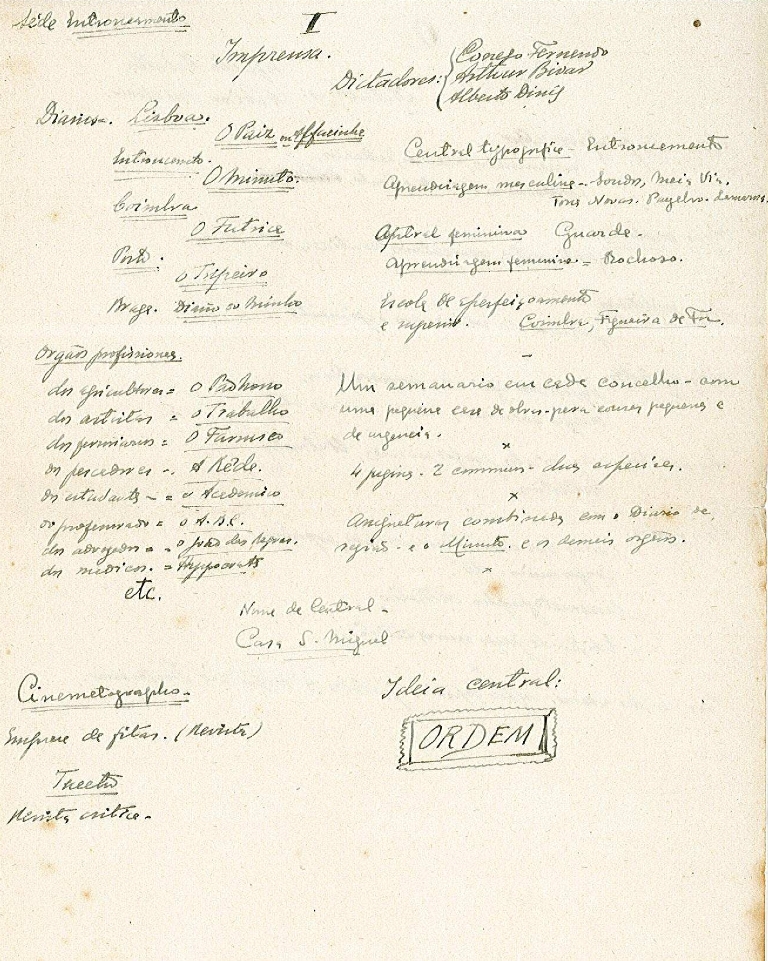 Séde Entroncamento
I
Imprensa.
Dictadores:
Conego Fernando
Arthur Bivar
Alberto Dinís
Diarios - Lisboa.
O Paiz ou Alfacinha
Entroncamento.
O Minuto.
Coimbra
O Futrica
Porto.
O Tripeiro
Braga. Diario do Minho
Orgãos profissionaes.
dos agricultores = O
dos artistas = O Trabalho
dos ferroviarios = O Furnisco
dos pescadores - A Rêde.
dos estudantes - = o Academico
do professorado = o A.B.C.
dos advogados = o João das Regras.
dos medicos. = Hippocrates
etc.
Central typografica - Entroncamento
Aprendizagem masculina - Meia Via,
Torres Novas.
feminina Guarda.
Aprendizagem feminina = Rochoso.
Escola de aperfeiçoamento
e superior. Coimbra, Figueira da Foz.
Um semanario em cada concelho - com
uma pequena casa de obras para cousas pequenas e
de urgencia.
x
4 paginas. 2 communs - duas especiaes.
x
Assignaturas combinadas com o Diario da
região - e o Minuto. e os demais orgãos.
x
Nome da Central -
Casa S. Miguel
Cinematographo -
Empresa de fitas. (Revista)
Theatro
Revista critica -
Ideia central:
ORDEM